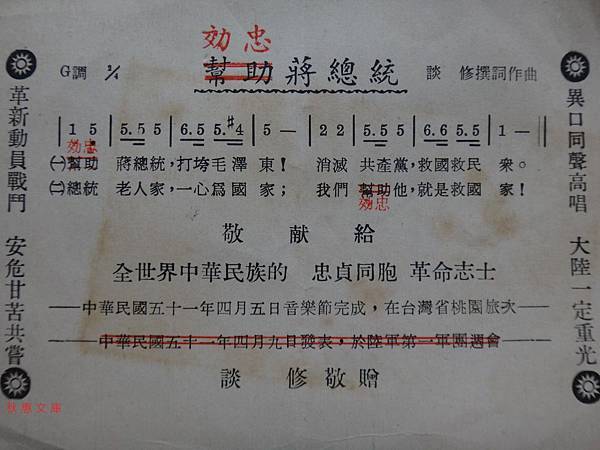 効忠
G調 2/4 幫助蔣總統 談 修撰詞作曲
| 1 5 | 5.5 5 | 6.5 5.#4 | 5 — | 2 2 | 5.5 5 | 6.6 5.5 | 1 — |
効忠
㈠幫助 蔣總統，打垮毛澤 東！ 消滅 共產黨，救國救民 衆。
㈡總統 老人家，一心爲國 家； 我們 幫助他，就是救國 家！
効忠
敬 献 給
全世界中華民族的 忠貞同胞 革命志士
——中華民國五十一年四月五日音樂節完成，在台灣省桃園旅次——
——中華民國五十一年四月九日發表，於陸軍第一軍團週會——
談 修敬贈
革新動員戰鬥 安危甘苦共嘗
異口同聲高唱 大陸一定重光
秋惠文庫